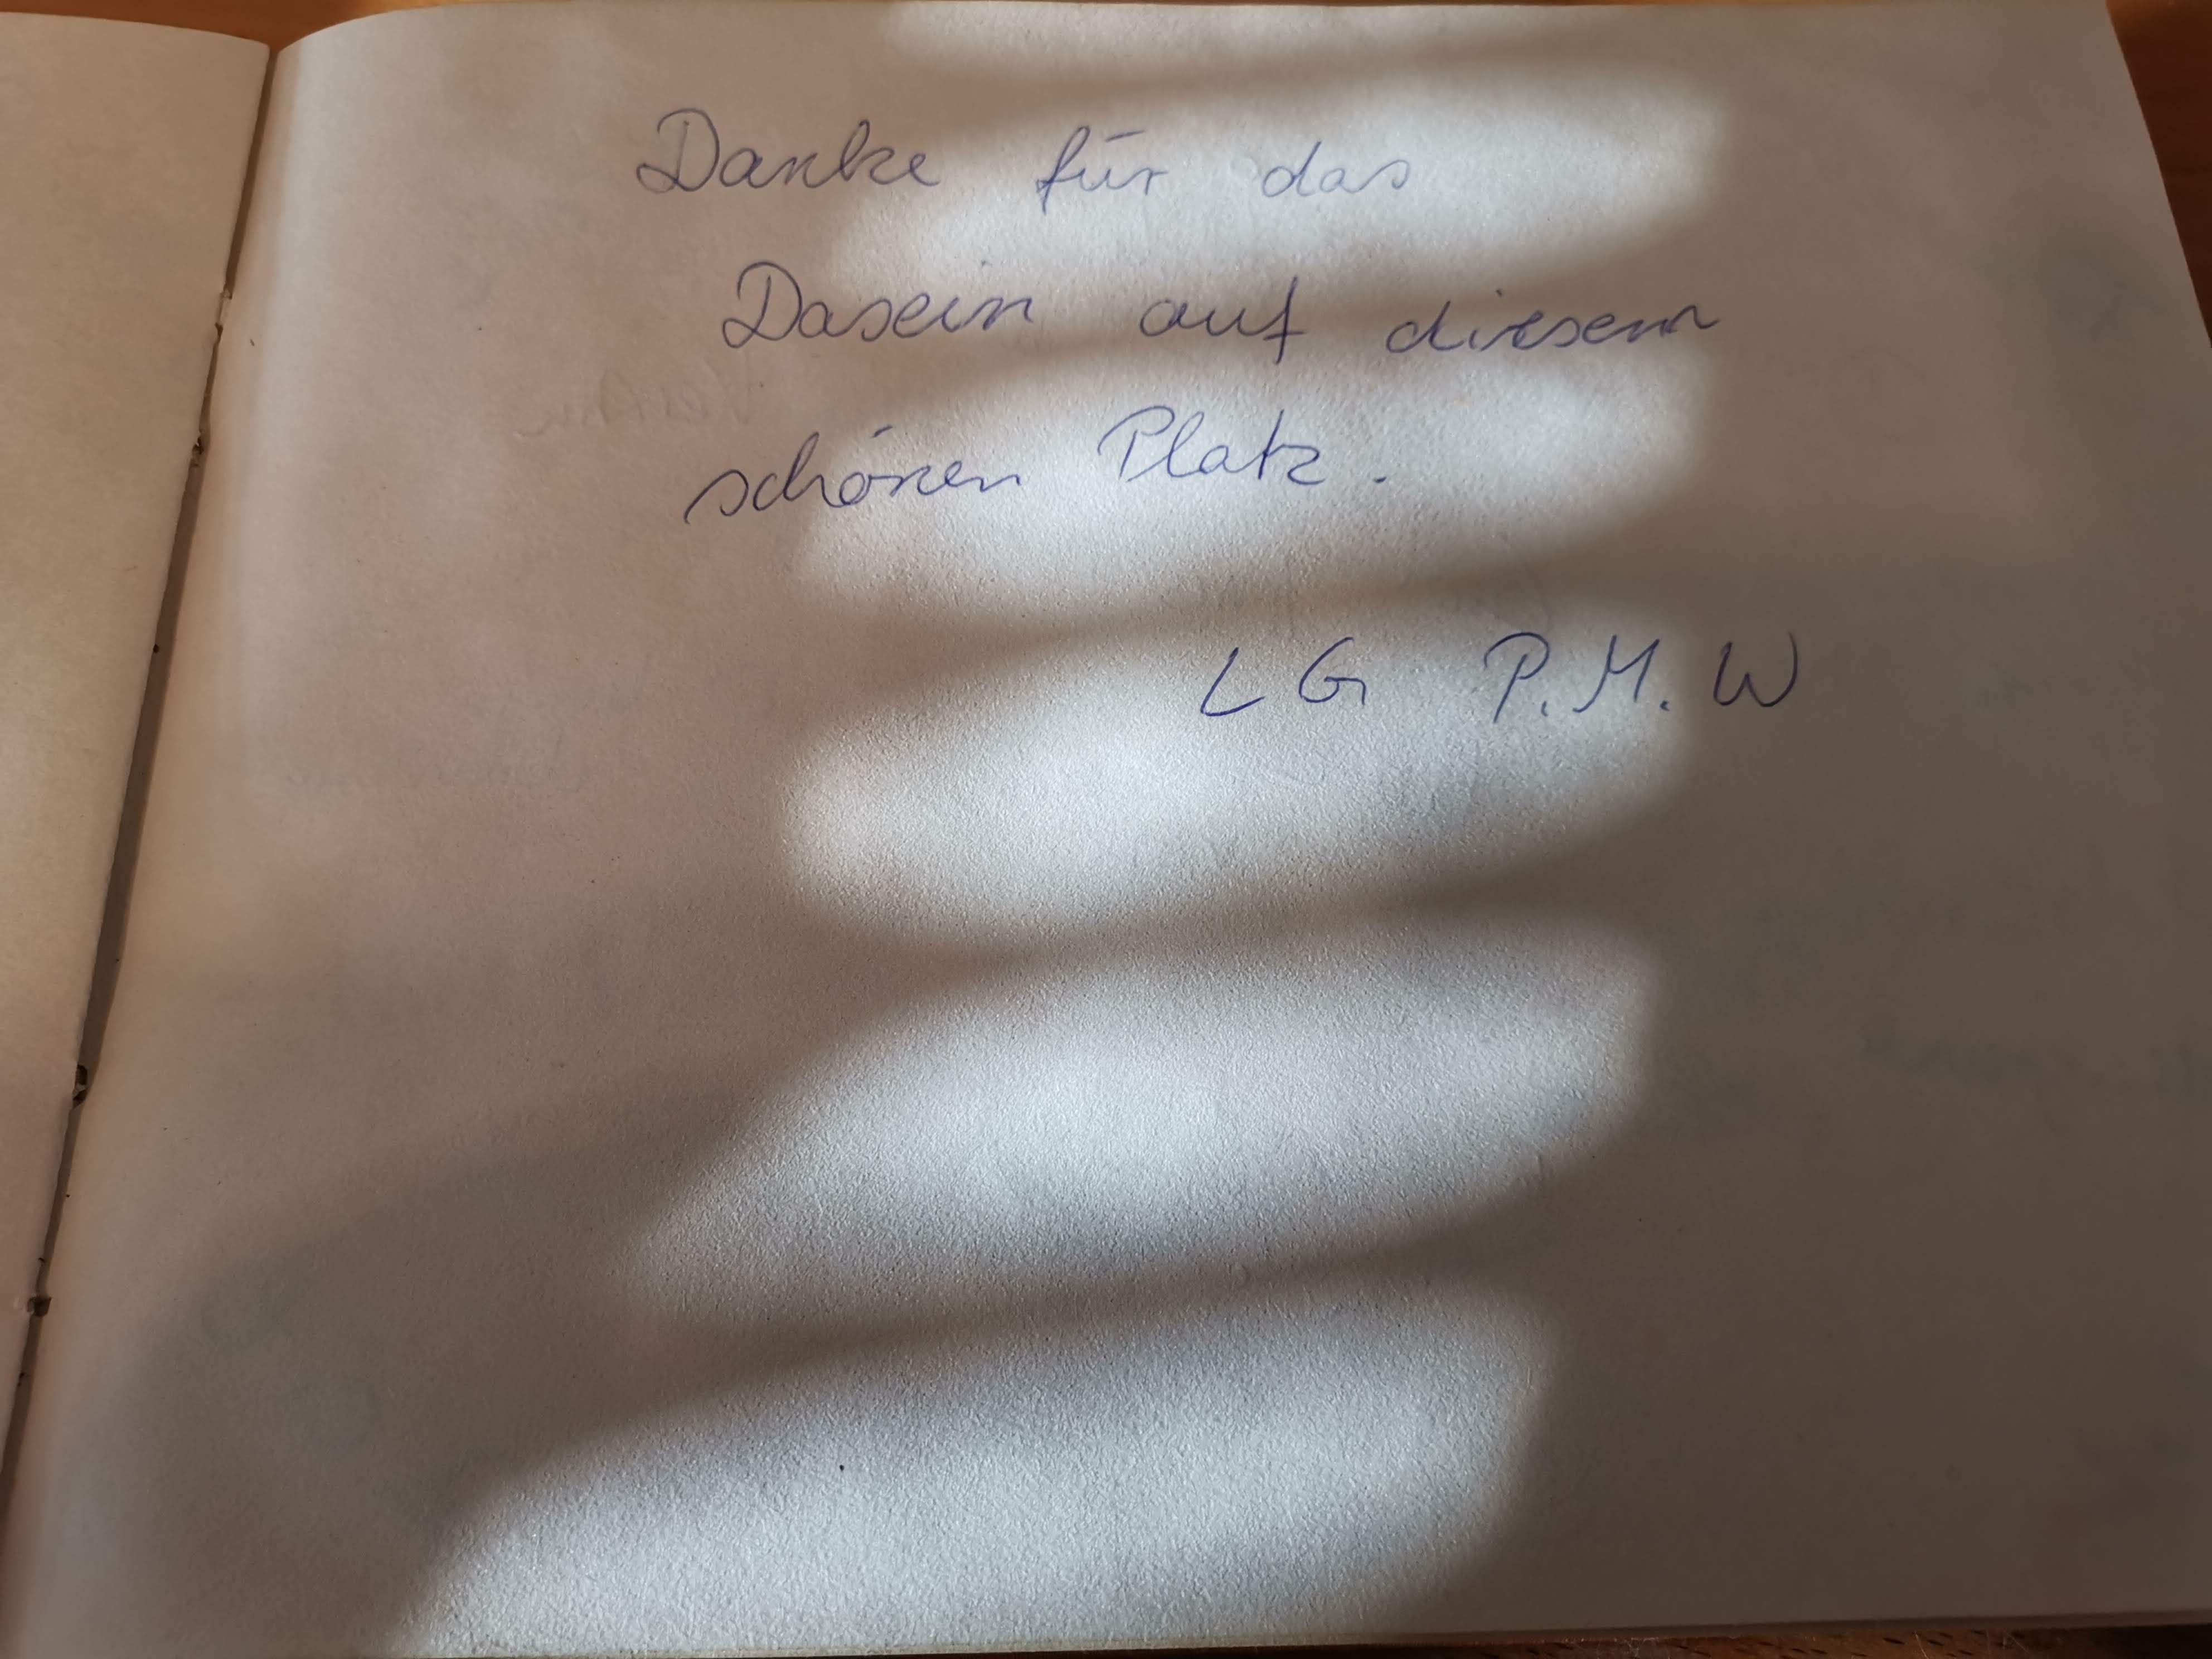 Danke für das
Dasein auf diesem
schönen Platz.
LG P.M.W